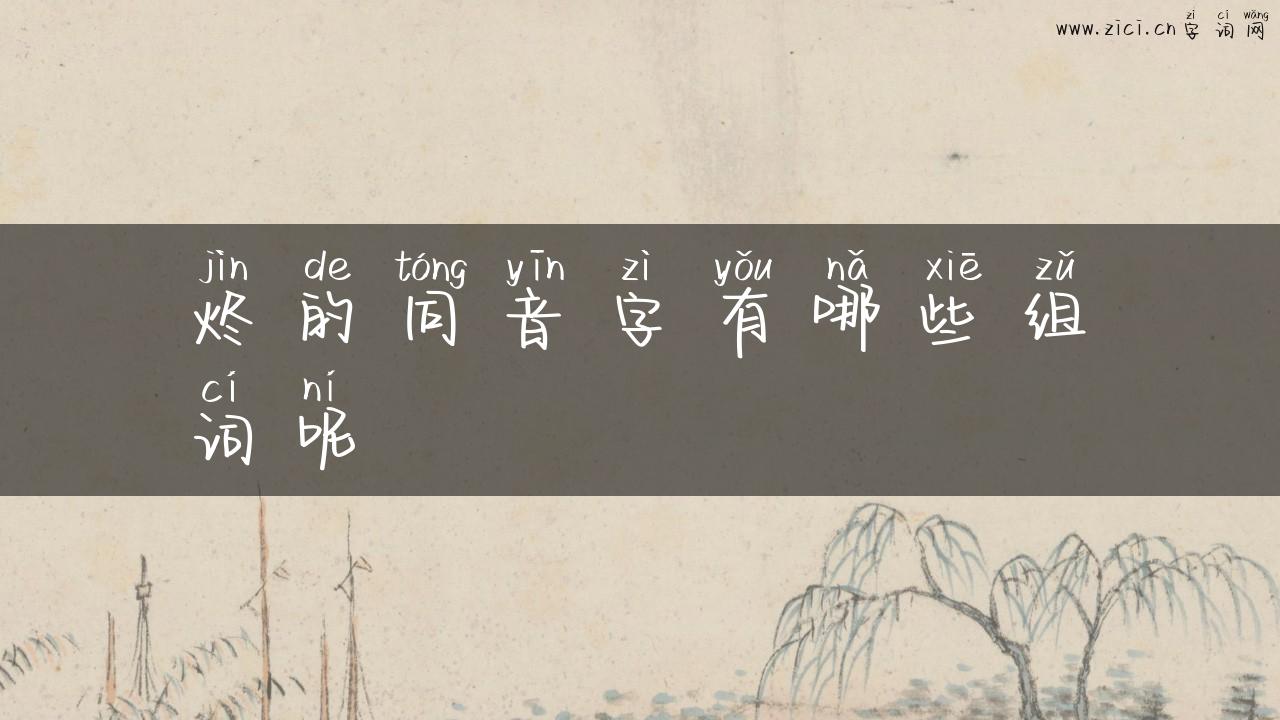 www.zici.cn zì cí wǎng
字词网
jìn de tóng yīn zì yǒu nǎ xiē zǔ
烬的同音字有哪些组
cí ní
词呢